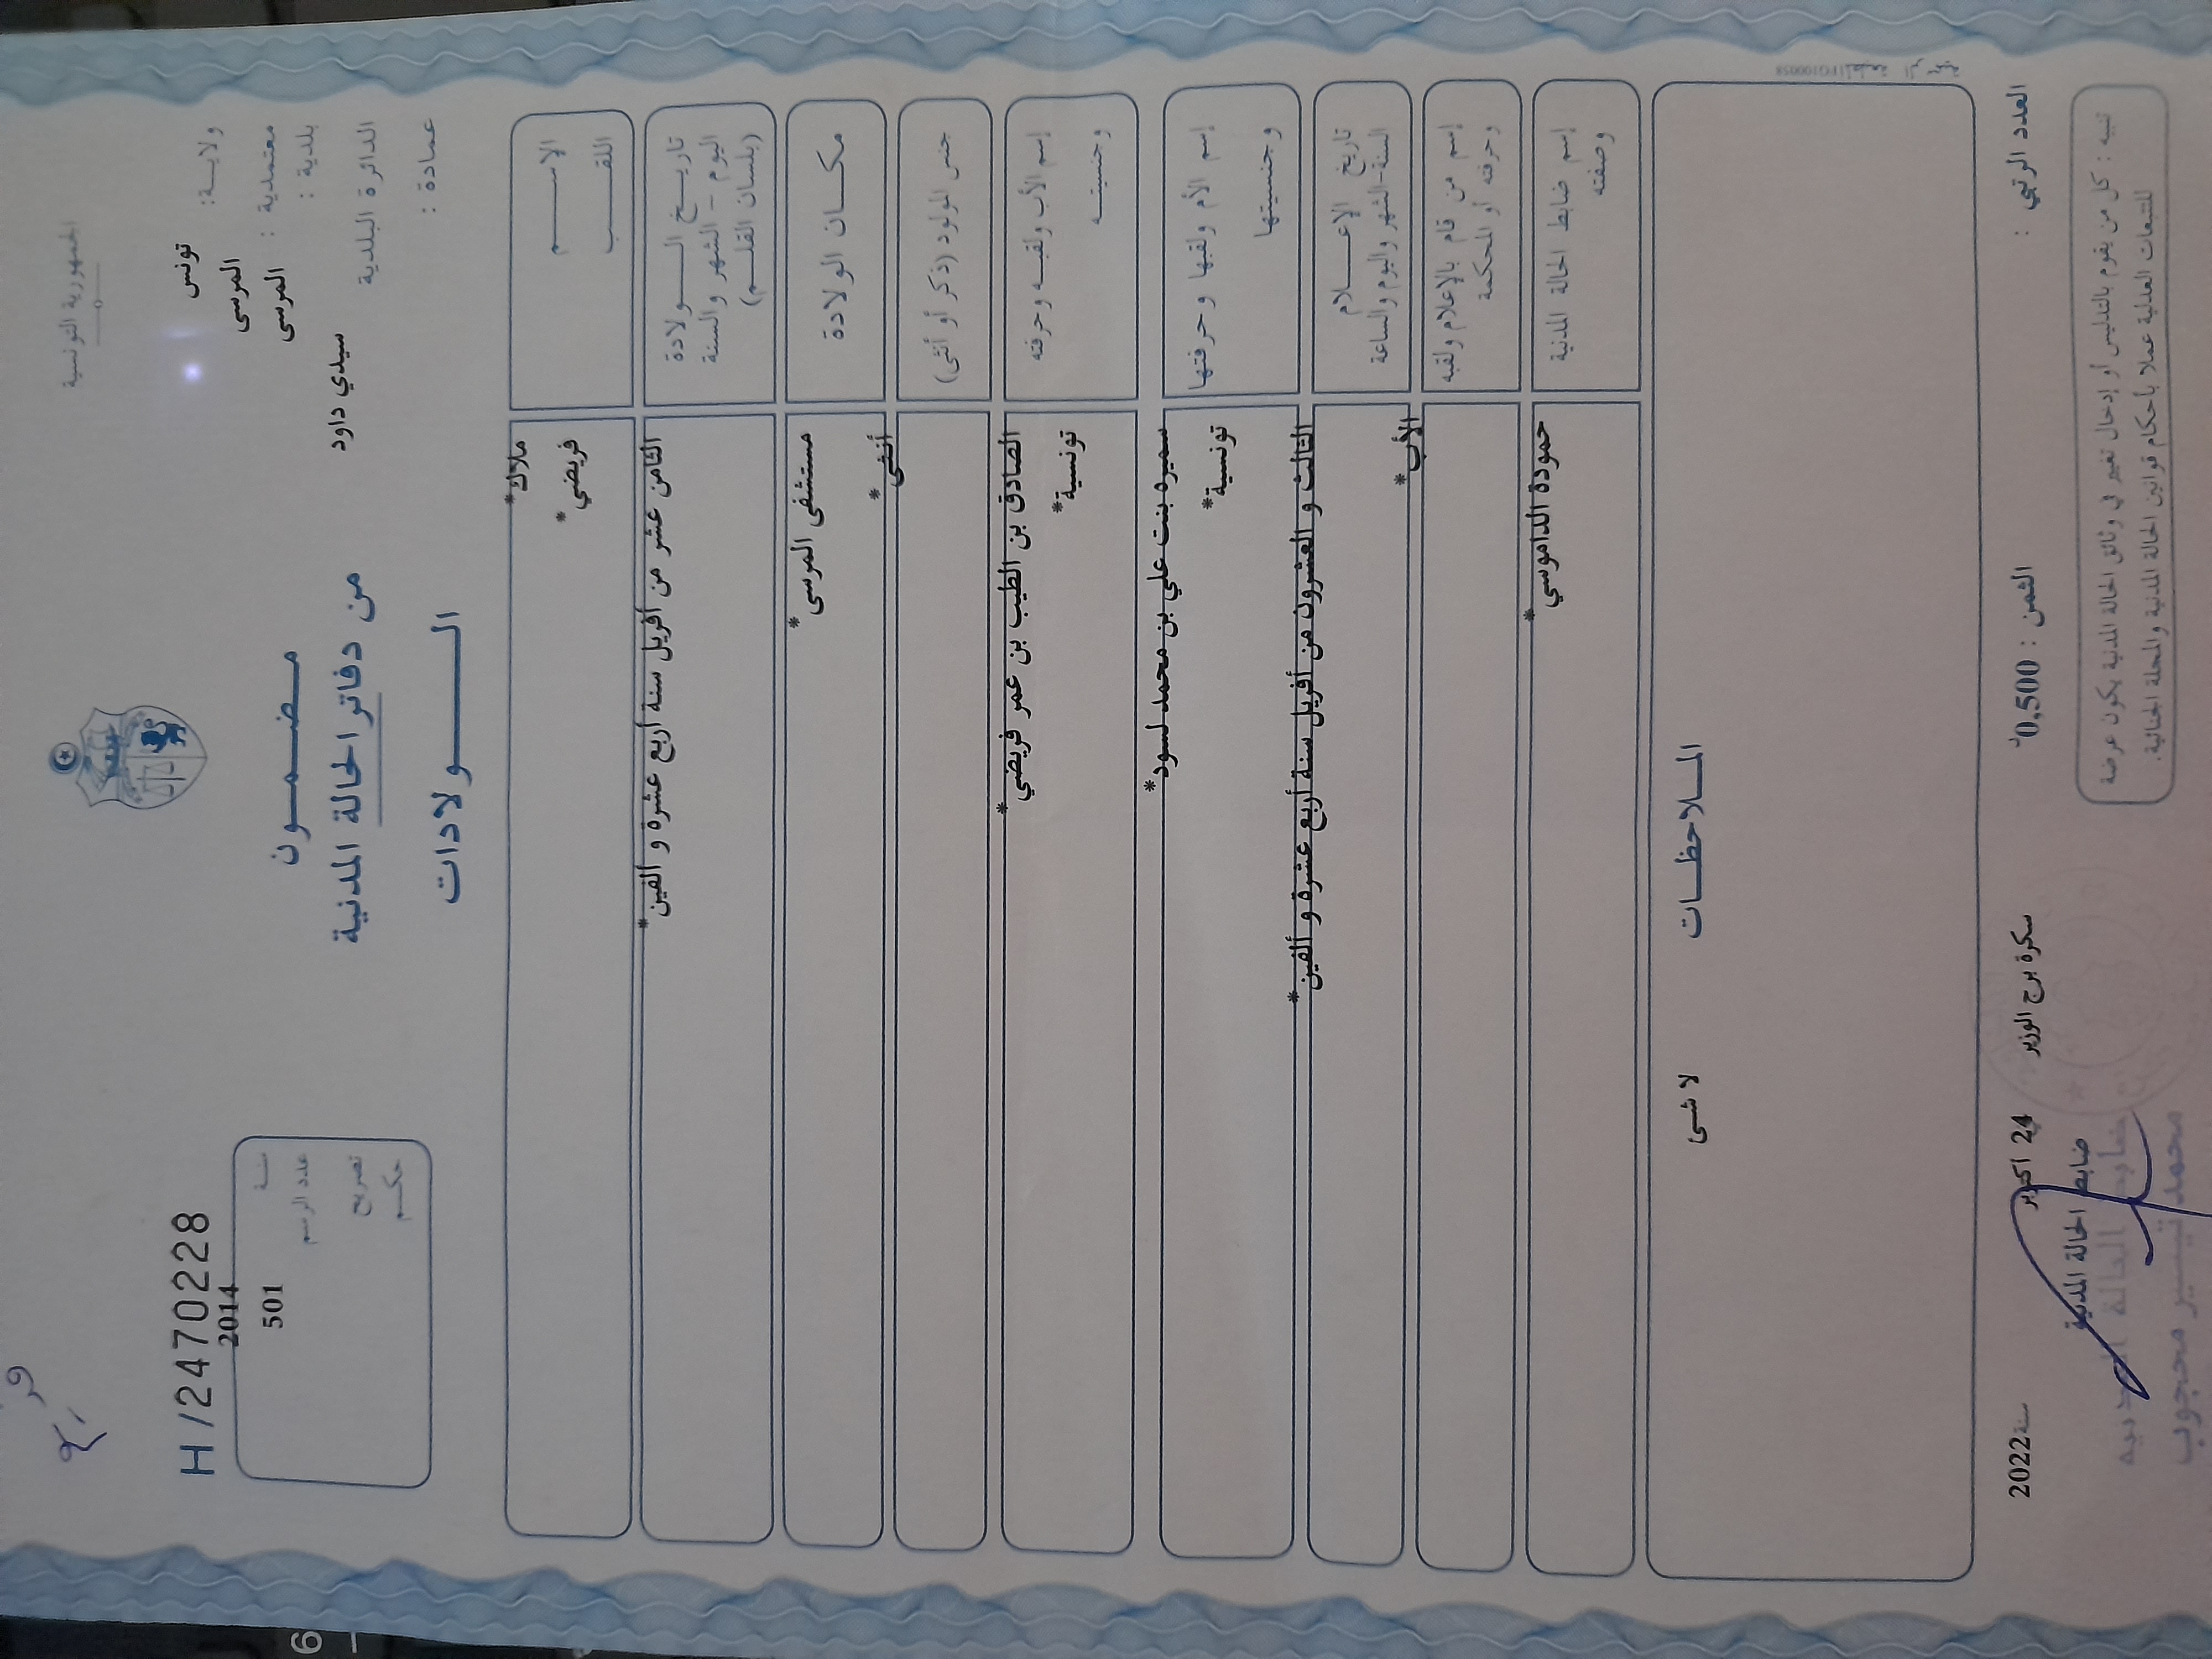 الجمهورية التونسية
ولاية: تونس
معتمدية : المرسى
بلدية : المرسى
الدائرة البلدية سيدي داود
عمادة :
مضمون
من دفاتر الحالة المدنية
الولادات
H/2470228
سنة 2014
عدد الرسم 501
تصريح
حكم
الاسم ملاك*
اللقب فريضي*
تاريخ الولادة
اليوم - الشهر والسنة
(بلسان القلم)
الثامن عشر من أفريل سنة أربع عشرة و ألفين*
مكان الولادة
مستشفى المرسى*
جنس المولود (ذكر أو أنثى)
أنثى*
إسم الأب ولقبه وحرفته
وجنسيته
الصادق بن الطيب بن عمر فريضي*
تونسية*
إسم الأم ولقبها وحرفتها
وجنسيتها
سميره بنت علي بن محمد لسود*
تونسية*
تاريخ الإعلام
السنة-الشهر واليوم والساعة
الثالث و العشرون من أفريل سنة أربع عشرة و ألفين*
إسم من قام بالإعلام ولقبه
وحرفته أو المحكمة
الأب*
إسم ضابط الحالة المدنية
وصفته
حمودة الداموسي*
الملاحظات
لا شى
العدد الرتبي :
الثمن : 0,500د
سكرة برج الوزير
24 اكتوبر
سنة 2022
تنبيه : كل من يقوم بالتدليس أو إدخال تغيير في وثائق الحالة المدنية يكون عرضة
للتتبعات العدلية عملا بأحكام قوانين الحالة المدنية والمجلة الجنائية.
ضابط الحالة المدنية
ضابط الحالة المدنية
محمد تيسير محجوب